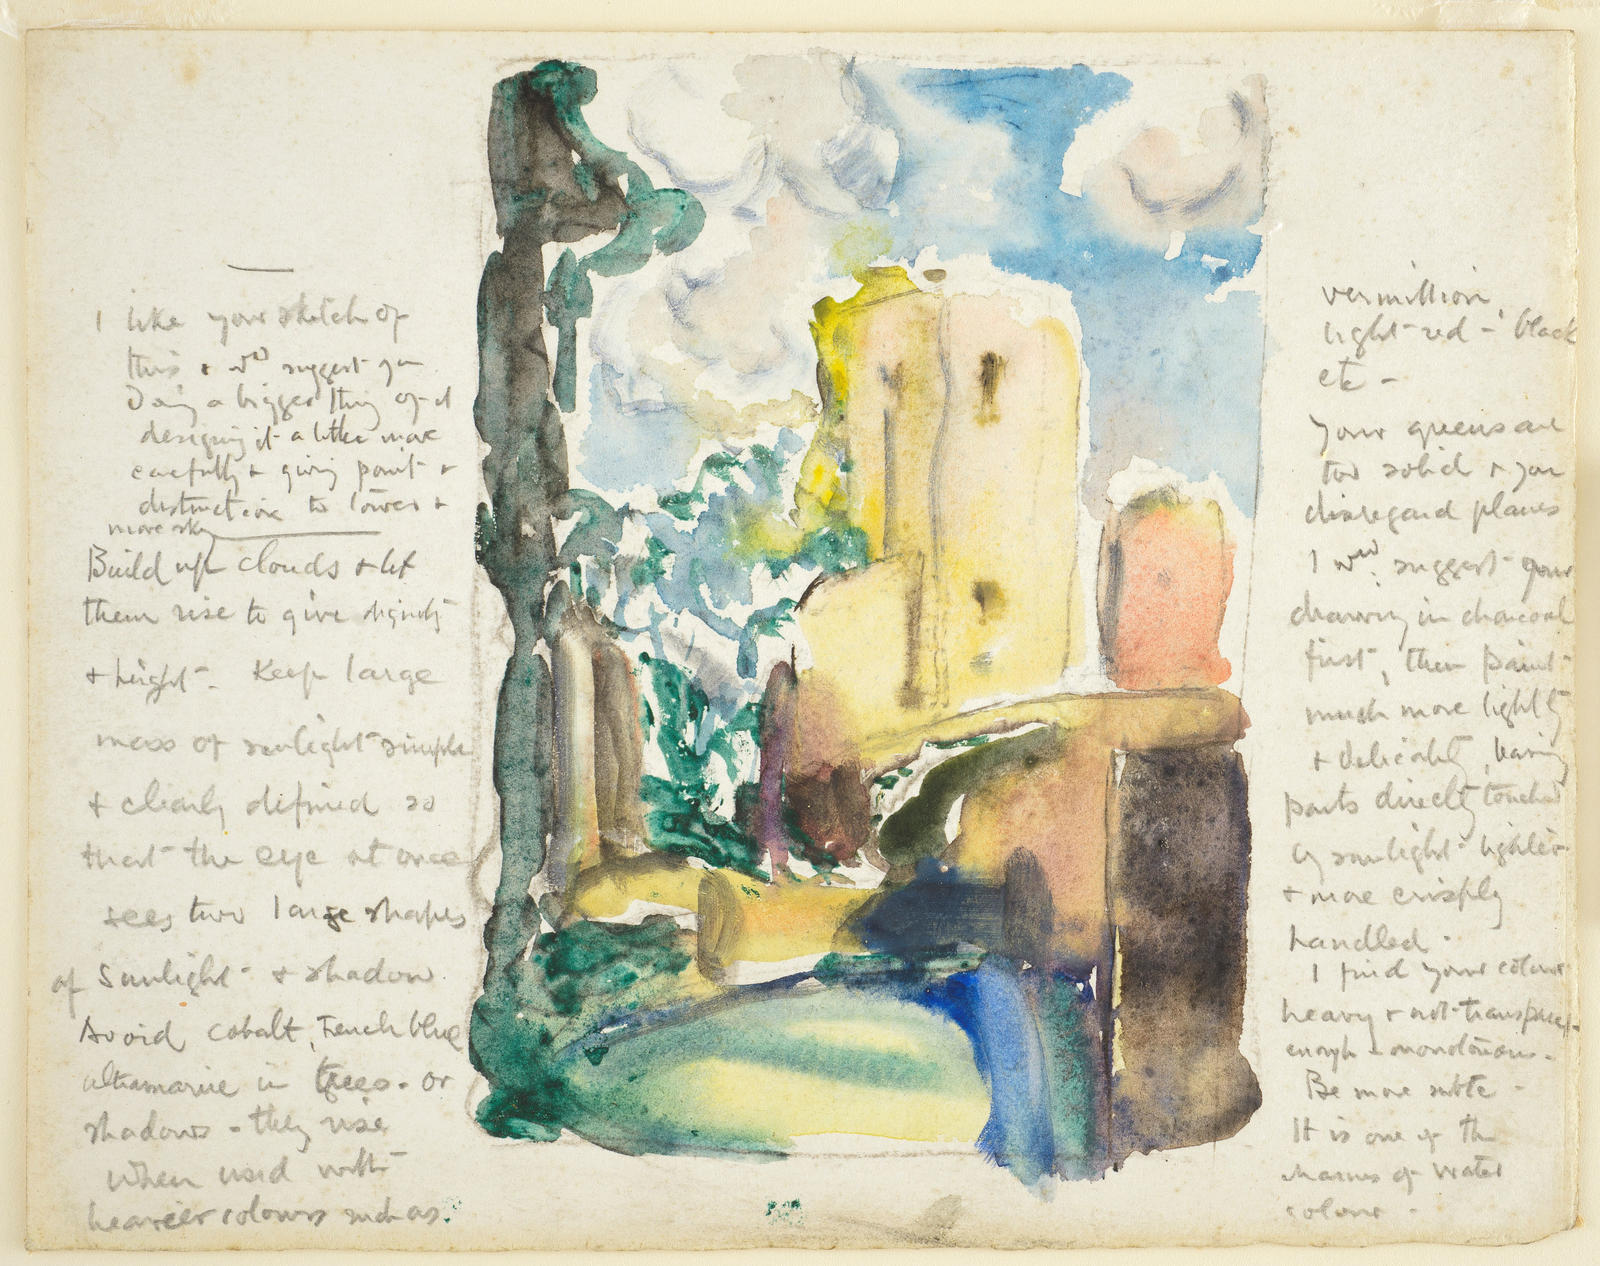 I like your sketch of
this & wd suggest you
Doing a bigger thing of it
designing it a little more
carefully & giving point &
distinction to tower &
more sky
Build up clouds & let
them rise to give dignity
& height - Keep large
mass of sunlight simple
& clearly defined so
that the eye at once
sees two large shapes
of Sunlight & shadow
Avoid cobalt, French blue
ultramarine in trees - or
shadows - they rise
when used with
heavier colours such as
vermillion
light red - black
etc -
Your greens are
too solid & you
disregard planes
I wd suggest your
drawing in charcoal
first, then paint
much more lightly
& delicately, leaving
parts directly touched
by sunlight lighter
& more crisply
handled.
I find your colour
heavy & not transparent
enough & monotonous -
Be more subtle -
It is one of the
charms of water
colour -